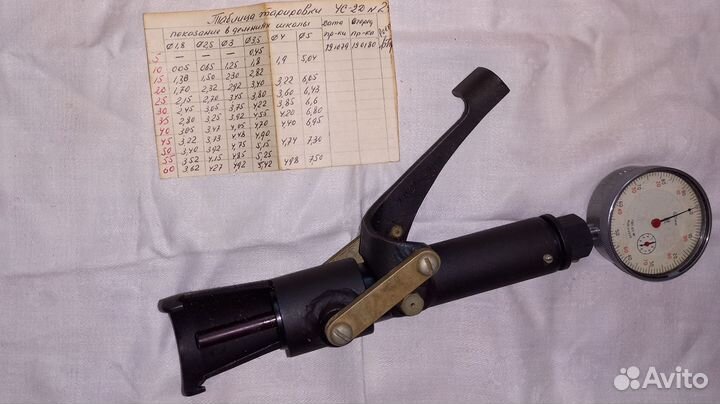 Таблица тарировки ЧС-20 № 2
показание в делениях школы дата очеред
Ø1,8 Ø2,5 Ø3 Ø3,5 Ø4 Ø5 пр-ки пр-ка
5 — — — 0,45 191079 190180
10 005 065 1,25 1,8 1,9 5,04
15 1,38 1,50 230 2,82
20 1,70 2,32 292 3,40 3,22 6,05
25 2,15 2,70 3,45 3,80 3,60 6,43
30 2,45 3,05 3,75 4,22 3,85 6,6
35 2,80 3,25 3,92 4,55 4,20 6,80
40 305 3,47 4,70 4,40 6,95
45 3,22 3,73 4,48 4,90
50 3,40 3,92 4,75 5,15 4,74 7,30
55 3,52 4,15 4,85 5,25
60 3,62 427 4,92 5,42 498 750
Avito